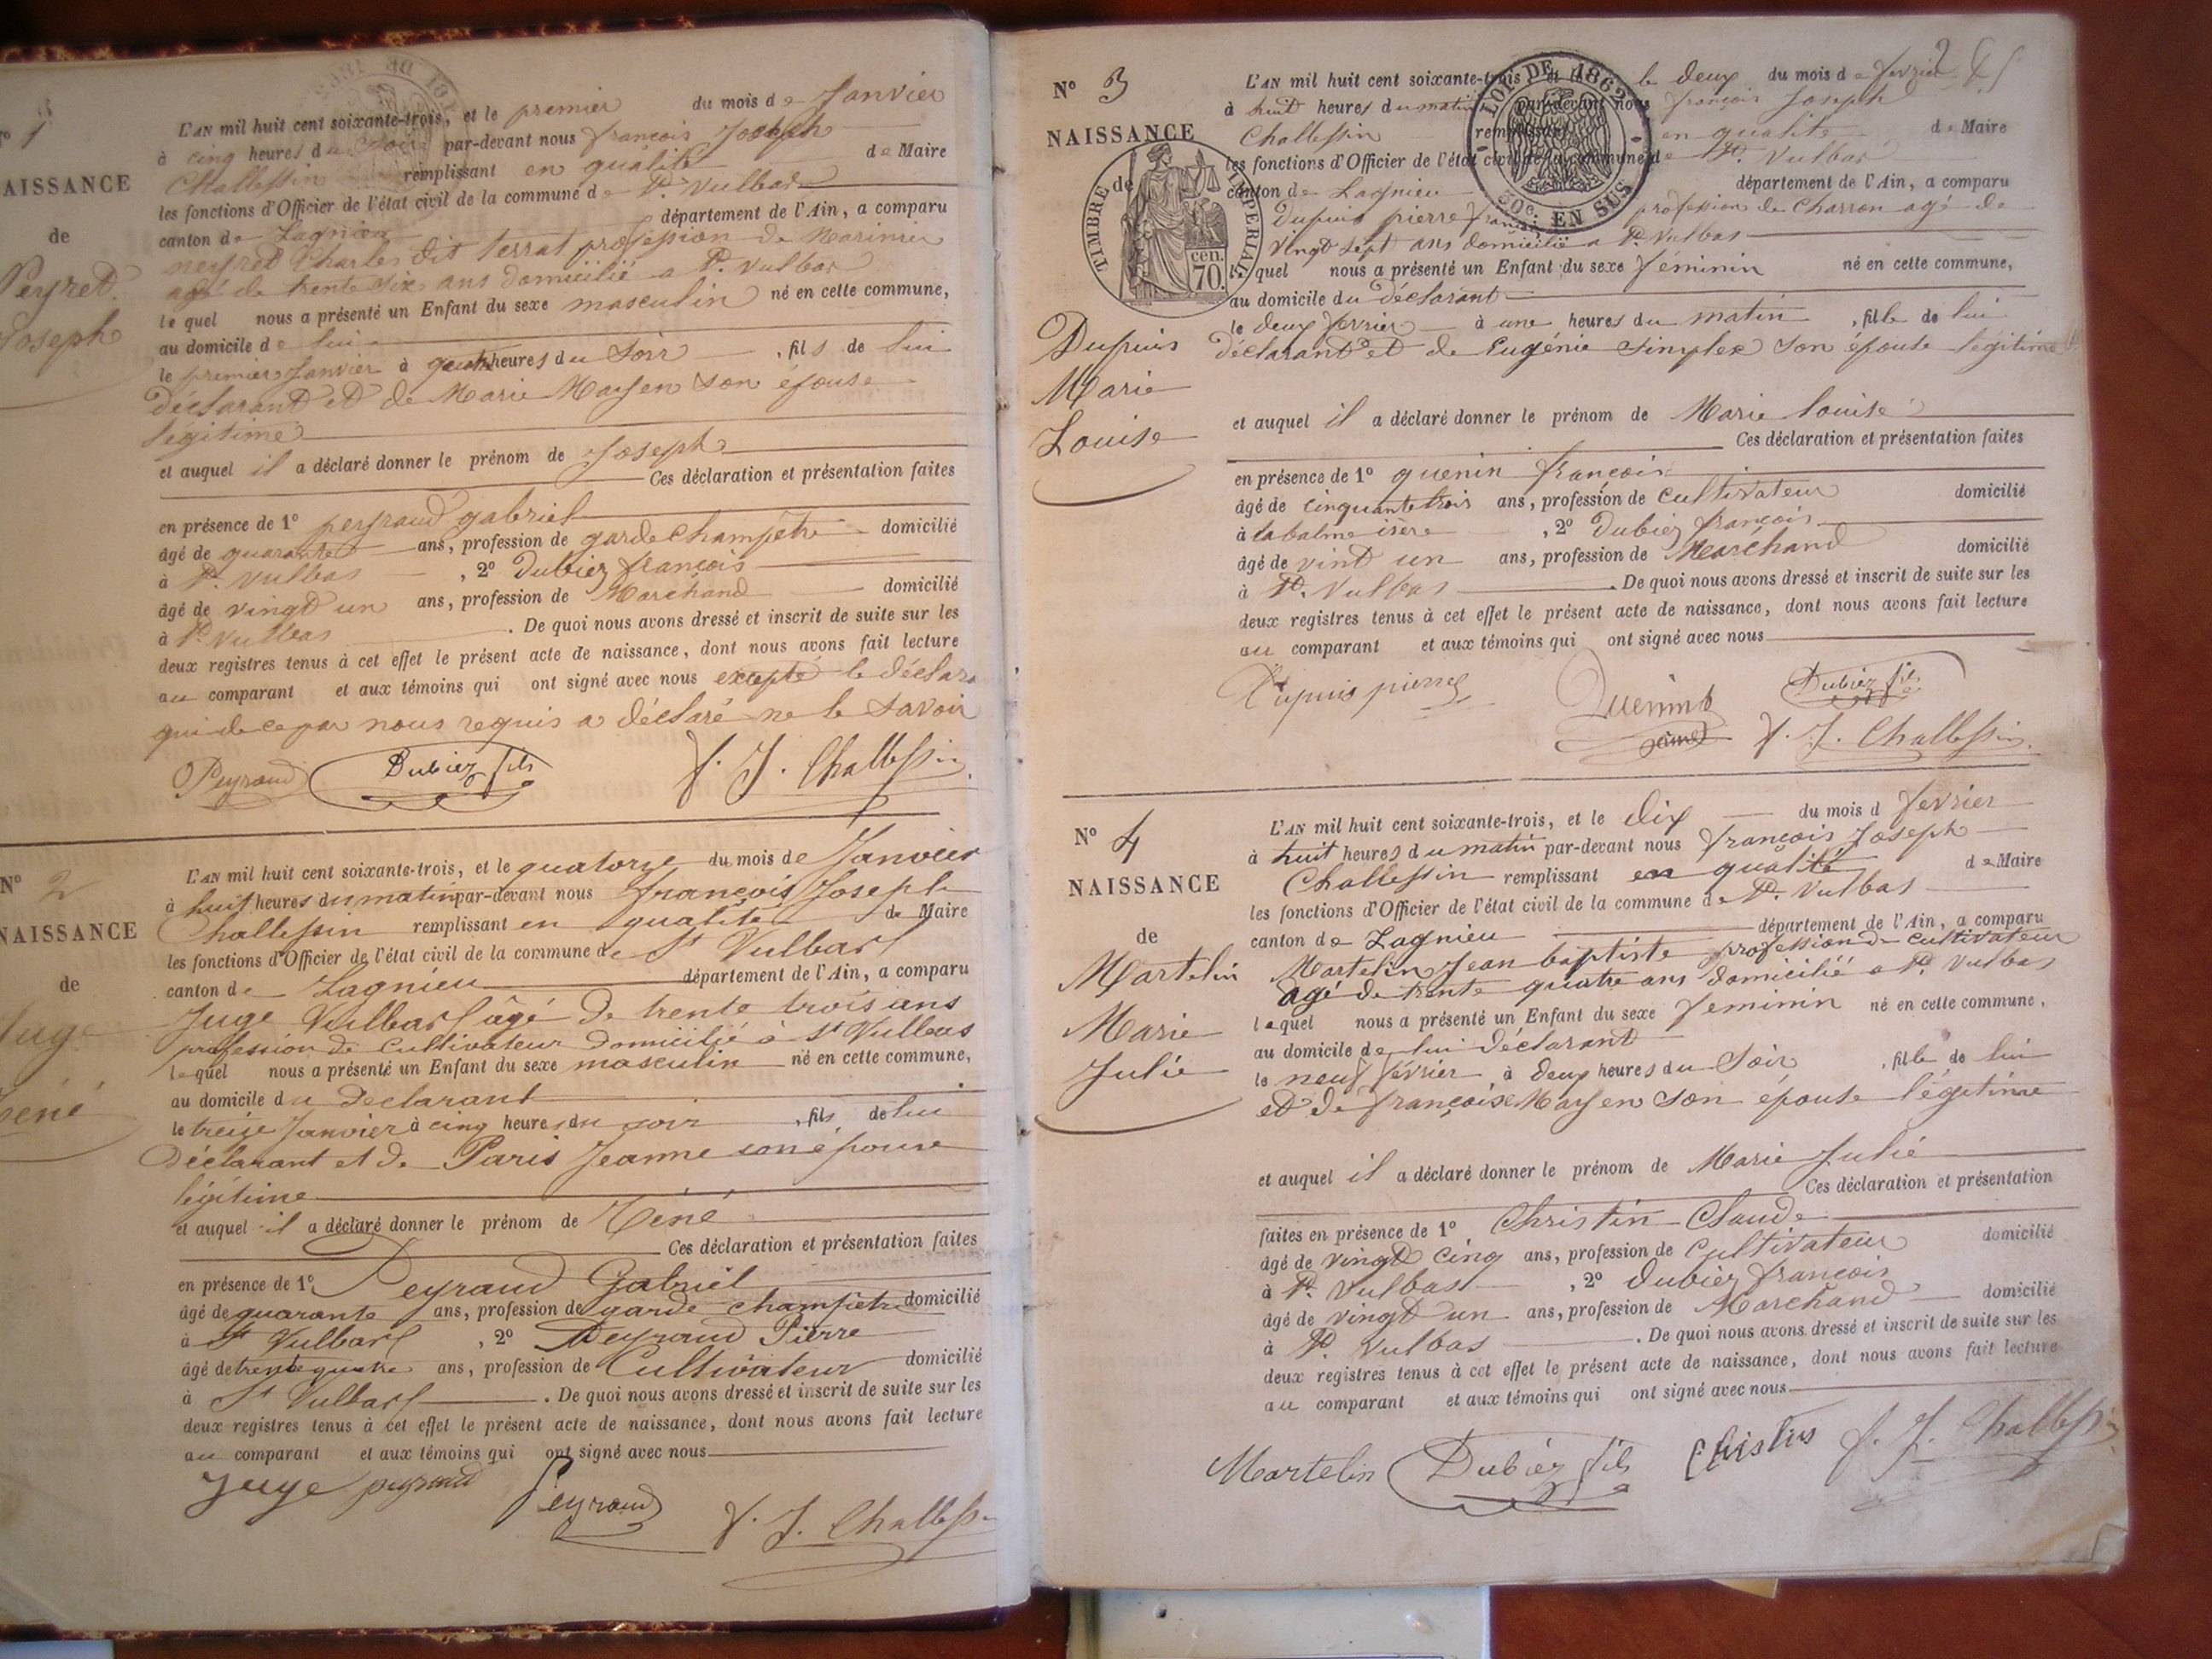 N° 1
NAISSANCE
de
Peyret
Joseph
L'AN mil huit cent soixante-trois, et le premier du mois de Janvier
à cinq heures du soir par-devant nous françois Joseph
Challessin remplissant en qualité de Maire
les fonctions d'Officier de l'état civil de la commune de St. Vulbas
canton de Lagnieu département de l'Ain, a comparu
neyret Charles dit terrat profession de Marinier
agé de trente six ans domicilié a St. Vulbas
lequel nous a présenté un Enfant du sexe masculin né en cette commune,
au domicile de lui
le premier Janvier à quatre heures du Soir, fils de lui
déclarant et de Marie Maysen son épouse
légitime
et auquel il a déclaré donner le prénom de Joseph
Ces déclaration et présentation faites
en présence de 1° peyraud gabriel
âgé de quarante ans, profession de garde champêtre domicilié
à St. Vulbas, 2° Dubiez françois
âgé de vingt un ans, profession de Marchand domicilié
à St. Vulbas. De quoi nous avons dressé et inscrit de suite sur les
deux registres tenus à cet effet le présent acte de naissance, dont nous avons fait lecture
au comparant et aux témoins qui ont signé avec nous excepté le déclara
qui de ce par nous requis a déclaré ne le Savoir
Peyraud Dubiez fils f. J. Challessin
N° 2
NAISSANCE
de
Juge
Réné
L'AN mil huit cent soixante-trois, et le quatorze du mois de Janvier
à huit heures du matin par-devant nous françois Joseph
Challessin remplissant en qualité de Maire
les fonctions d'Officier de l'état civil de la commune de St Vulbas
canton de Lagnieu département de l'Ain, a comparu
Juge Vulbas âgé de trente trois ans
profession de Cultivateur domicilié à St Vulbas
lequel nous a présenté un Enfant du sexe masculin né en cette commune,
au domicile du declarant
le treize Janvier à cinq heures du soir, fils de lui
déclarant et de Paris Jeanne son épouse
légitime
et auquel il a déclaré donner le prénom de Réné
Ces déclaration et présentation faites
en présence de 1° Peyraud Gabriel
âgé de quarante ans, profession de garde champêtre domicilié
à St Vulbas, 2° Peyraud Pierre
âgé de trente quatre ans, profession de Cultivateur domicilié
à St Vulbas. De quoi nous avons dressé et inscrit de suite sur les
deux registres tenus à cet effet le présent acte de naissance, dont nous avons fait lecture
au comparant et aux témoins qui ont signé avec nous
Juge peyraud Peyraud f. J. Challess
N° 3
NAISSANCE
de
TIMBRE IMPERIAL
cen.
70.
Dupuis
Marie
Louise
LOI DE 1862
50c. EN SUS
L'AN mil huit cent soixante-trois et le deux du mois de fevrier
à huit heures du matin par-devant nous françois Joseph
Challessin remplissant en qualité de Maire
les fonctions d'Officier de l'état civil de la commune de St. Vulbas
canton de Lagnieu département de l'Ain, a comparu
Dupuis pierre profession de Charron agé de
vingt sept ans domicilié a St. Vulbas
lequel nous a présenté un Enfant du sexe féminin né en cette commune,
au domicile du déclarant
le deux fevrier à une heures du matin, fille de lui
déclarant et de Eugénie Simplex Son épouse légitime
et auquel il a déclaré donner le prénom de Marie Louise
Ces déclaration et présentation faites
en présence de 1° quenin françois
âgé de cinquante trois ans, profession de cultivateur domicilié
à la balme isère, 2° Dubiez françois
âgé de vint un ans, profession de Marchand domicilié
à St. Vulbas. De quoi nous avons dressé et inscrit de suite sur les
deux registres tenus à cet effet le présent acte de naissance, dont nous avons fait lecture
au comparant et aux témoins qui ont signé avec nous
Dupuis pierre Quenin Dubiez fils
ainé f. J. Challessin
N° 4
NAISSANCE
de
Martelin
Marie
Julie
L'AN mil huit cent soixante-trois, et le dix du mois d fevrier
à huit heures du matin par-devant nous françois Joseph
Challessin remplissant en qualité de Maire
les fonctions d'Officier de l'état civil de la commune de St. Vulbas
canton de Lagnieu département de l'Ain, a comparu
Martelin Jean baptiste profession de cultivateur
agé de trente quatre ans domicilié a St. Vulbas
lequel nous a présenté un Enfant du sexe feminin né en cette commune,
au domicile de lui déclarant
le neuf février à deux heures du Soir, fille de lui
et de françoise Maysen Son épouse légitime
et auquel il a déclaré donner le prénom de Marie Julie
Ces déclaration et présentation
faites en présence de 1° Christin Claude
âgé de vingt cinq ans, profession de Cultivateur domicilié
à St. Vulbas, 2° Dubiez françois
âgé de vingt un ans, profession de Marchand domicilié
à St. Vulbas. De quoi nous avons dressé et inscrit de suite sur les
deux registres tenus à cet effet le présent acte de naissance, dont nous avons fait lecture
au comparant et aux témoins qui ont signé avec nous
Martelin Dubiez fils Christin f. J. Challessin